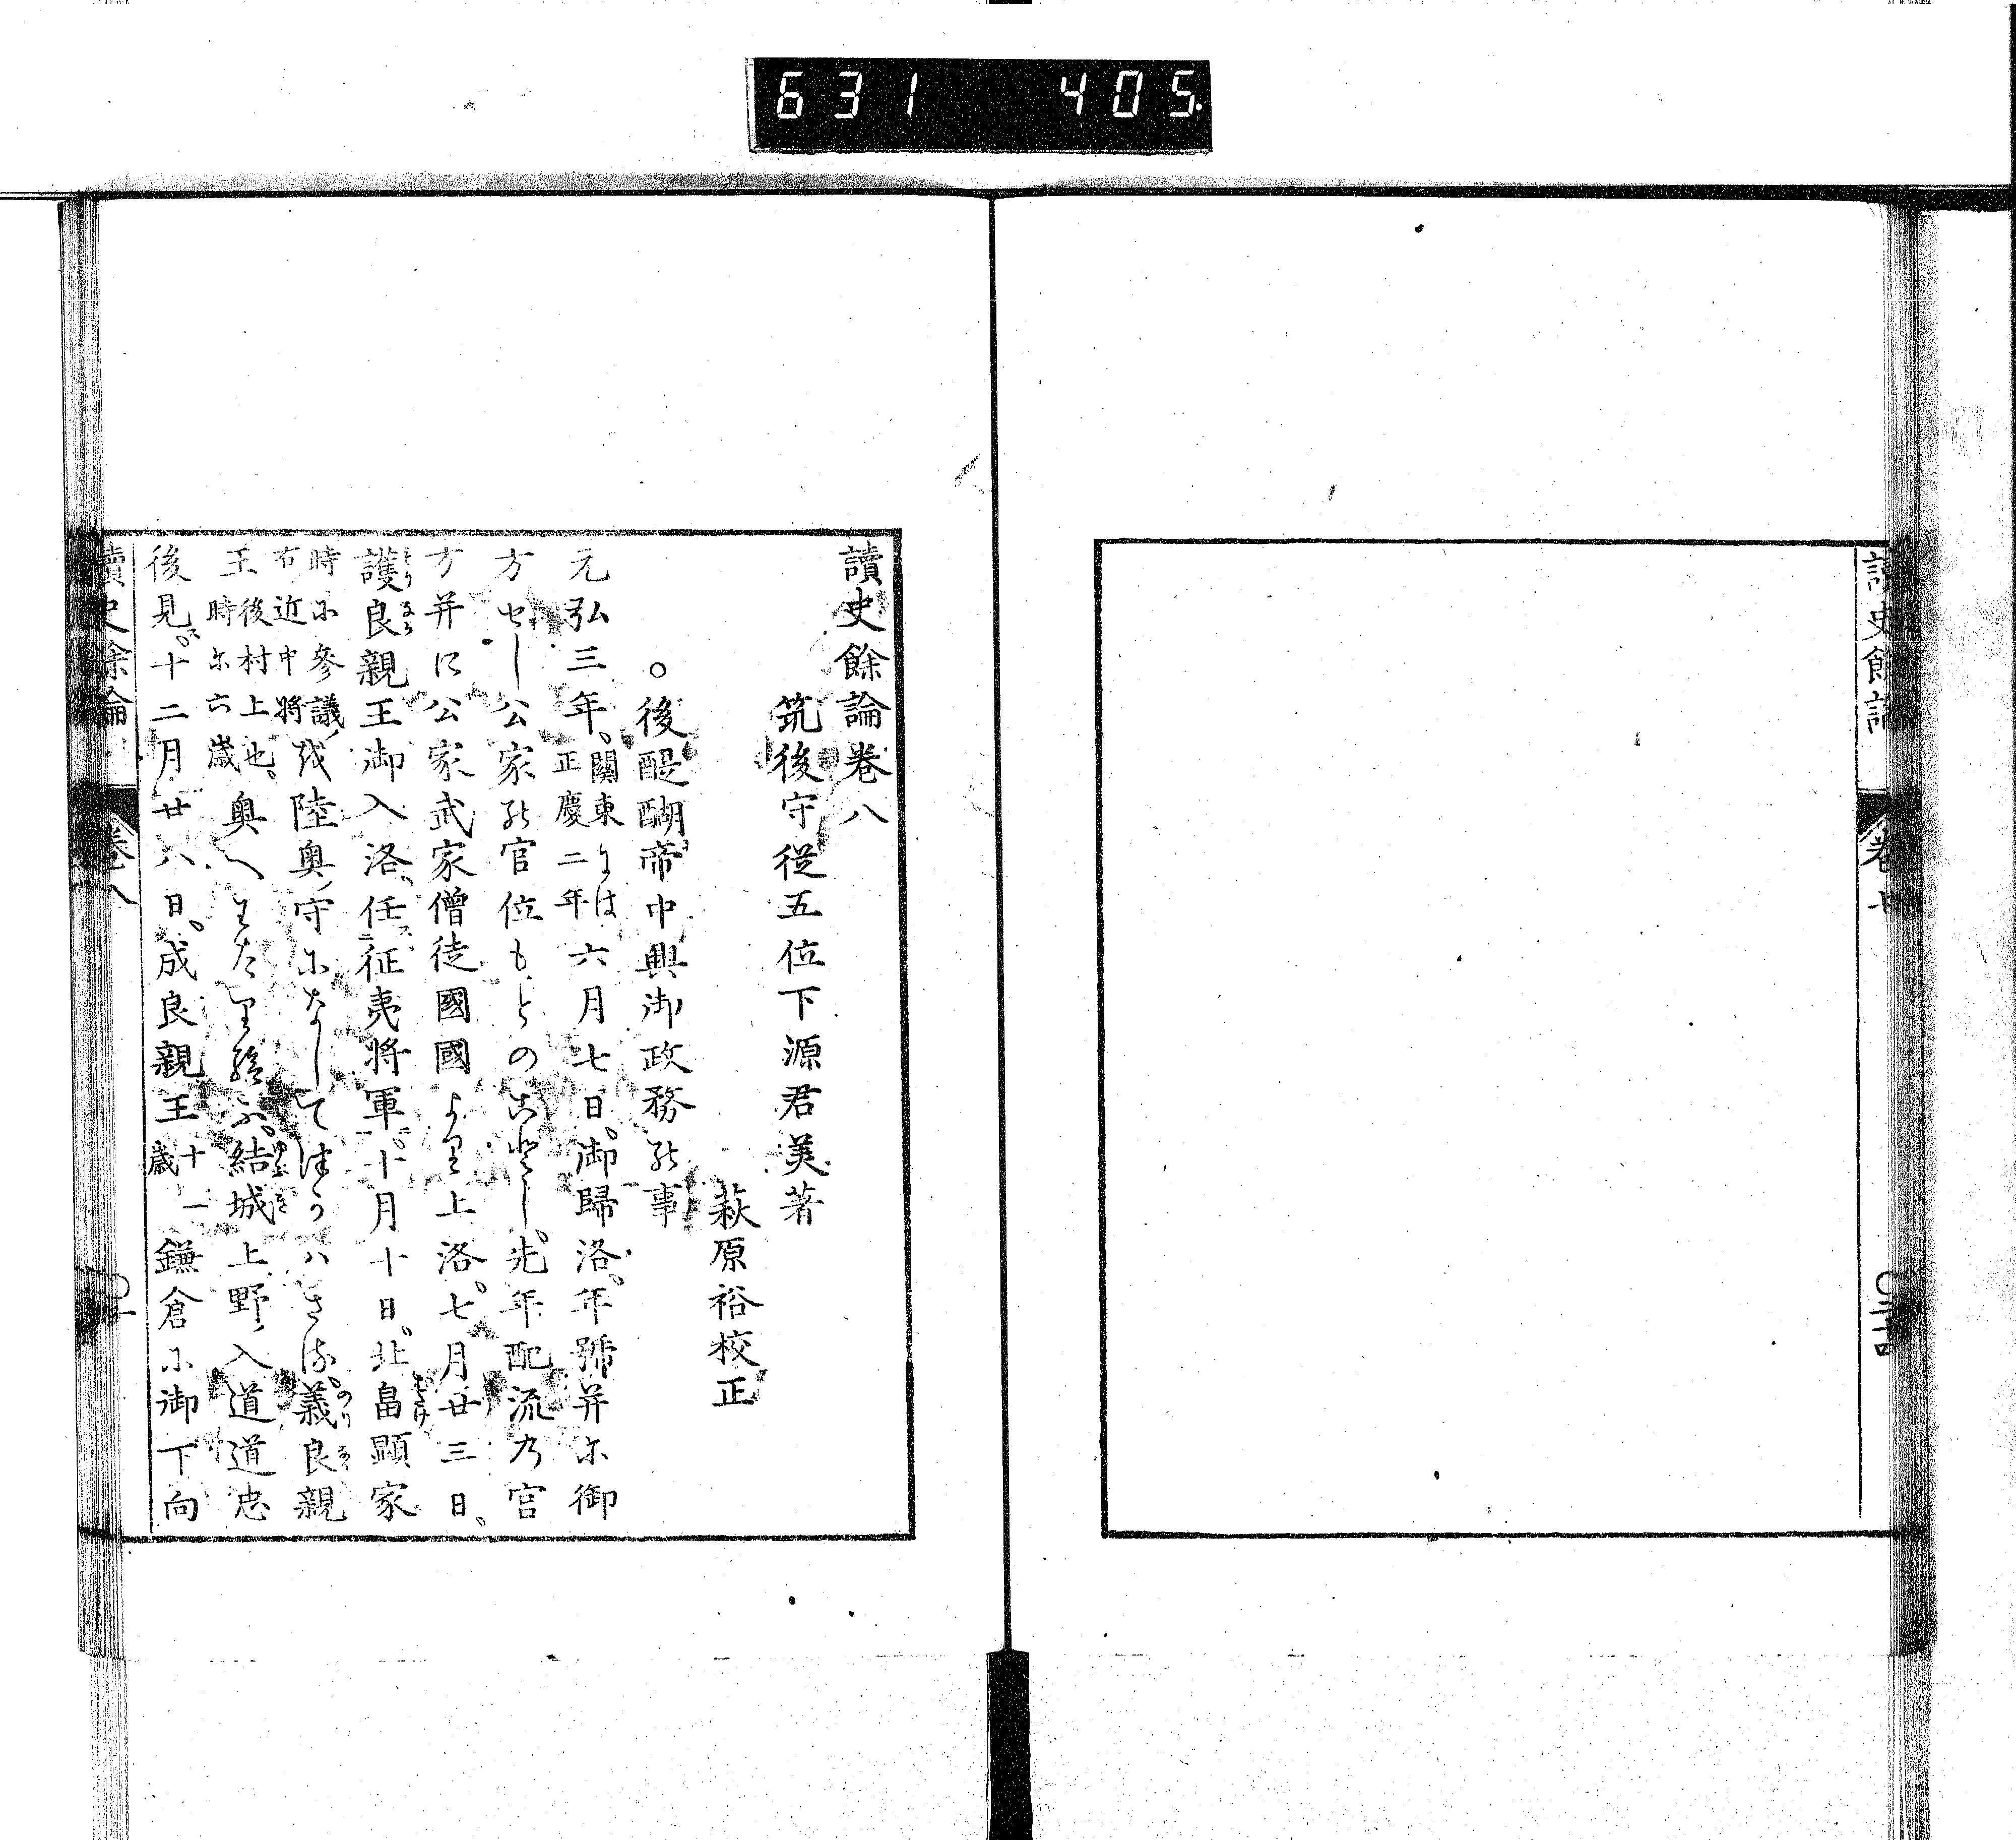 631 405
讀史餘論 卷七
讀史餘論卷八
筑後守從五位下源君美著
萩原裕校正
○後醍醐帝中興御政務の事
元弘三年、關東には正慶二年六月七日、御歸洛、年號并に御
方せし公家の官位もとのごとし、先年配流の宮
方并に公家武家僧徒國國より上洛、七月廿三日、
護良親王御入洛、任征夷將軍、十月十日、北畠顯家
時に參議右近中將を陸奥ノ守になしてつかはさる、義良親
王後村上也、時に六歳奥へわたり給ふ、結城上野ノ入道道忠
後見ス、十二月廿八日、成良親王十一歳鎌倉に御下向
讀史餘論 卷八